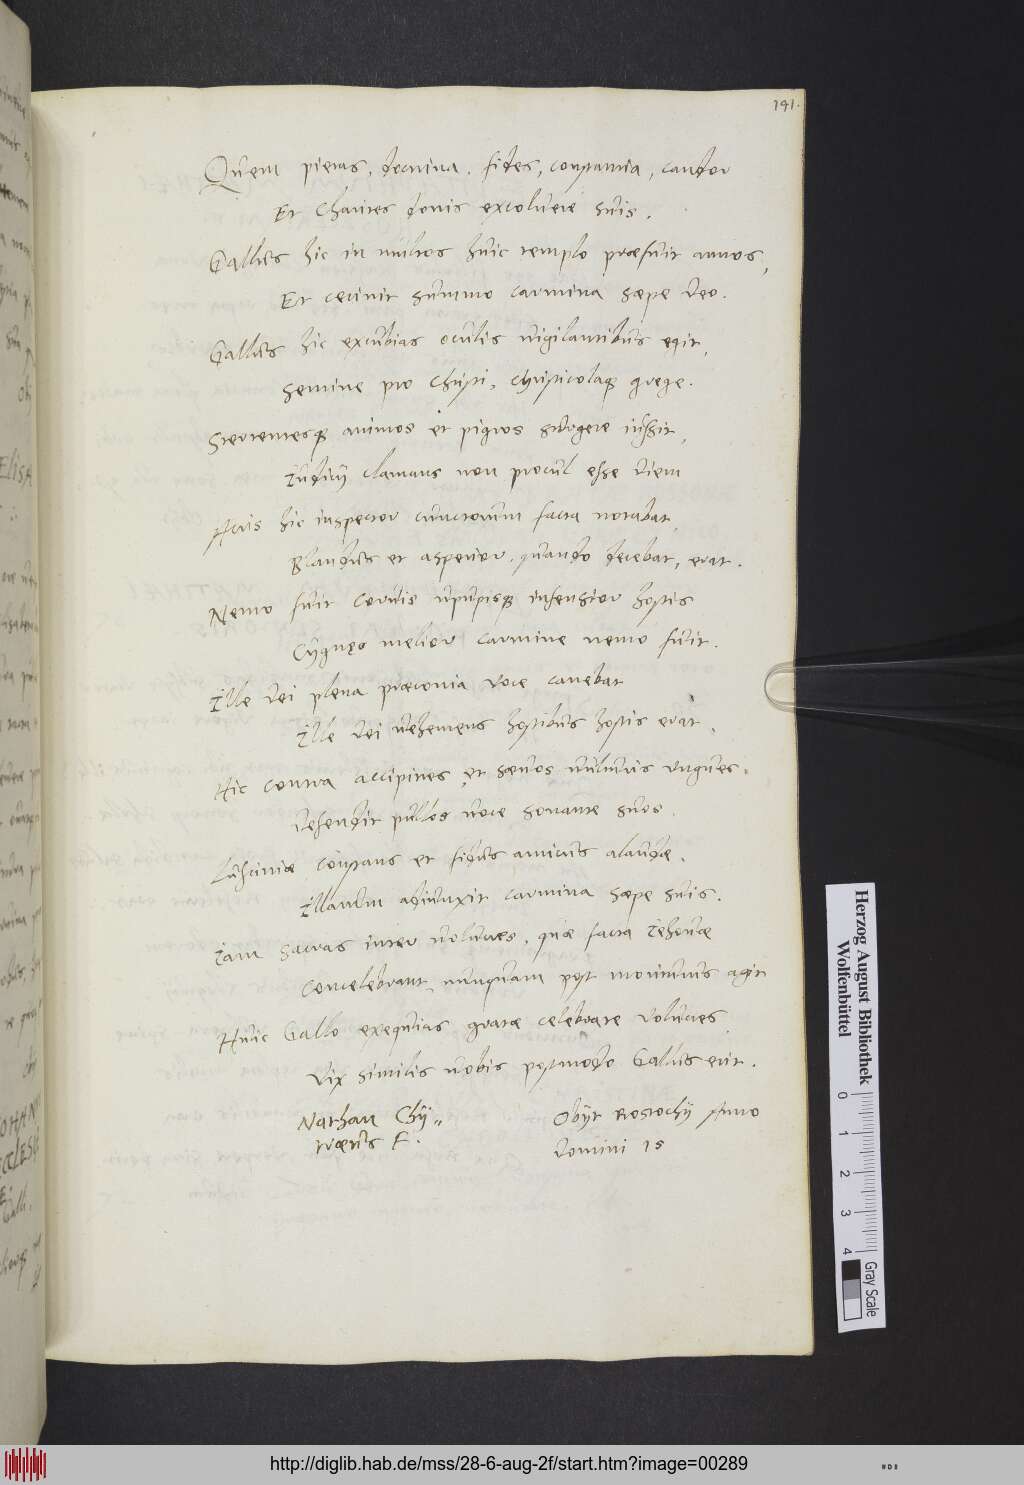 141.
Quem pietas, doctrina, fides, constantia, candor
Et Charites donis excoluere suis.
Gallus hic in multos huic templo praefuit annos,
Et cecinit summo carmina saepe deo.
Gallus hic excubias oculis vigilantibus egit,
Semine pro Christi, Christicolaq; grege.
Stertentesq; animos et pigros surgere iussit,
Iudicij clamans non procul esse diem
Acris hic inspector cunctorum facta notabat,
Blandus et asperior, quando decebat, erat.
Nemo fuit corvis upupisq; infensior hostis
Cygnęs melior carmine nemo fuit.
Ille dei plena praeconia voce canebat
Ille dei vehemens hostibus hostis erat.
Hic contra accipitres et saevos vulturis ungues.
Defendit pullos voce sonante suos.
Lusciniae constans et fidus amicus alaudae.
Illarum adiunxit carmina saepe suis.
Iam sacras inter volucres, quae facta Iehovae
Concelebrant, nunquam post moriturus agit
Huic Gallo exequias gratae celebrate volucres
Vix similis vobis postmodo Gallus erit.
Nathan Chÿ„
traeus F.
Obijt Rostochij Anno
Domini 15
ELISA
Herzog August Bibliothek
Wolfenbüttel
0 1 2 3 4
Gray Scale
http://diglib.hab.de/mss/28-6-aug-2f/start.htm?image=00289